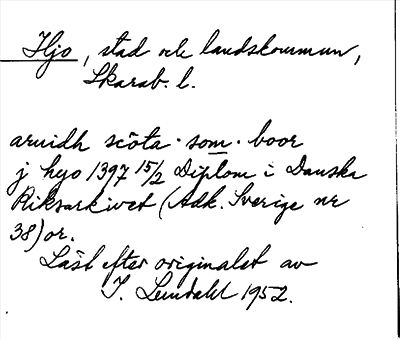 Hjo, stad och landskommun,
Skarab. l.
arvidh scöta · som · boor
j hyo 1397 15/2 Diplom i Danska
Riksarkivet (Adk. Sverige nr
38) or.
Läst efter originalet av
I. Lundahl 1952.